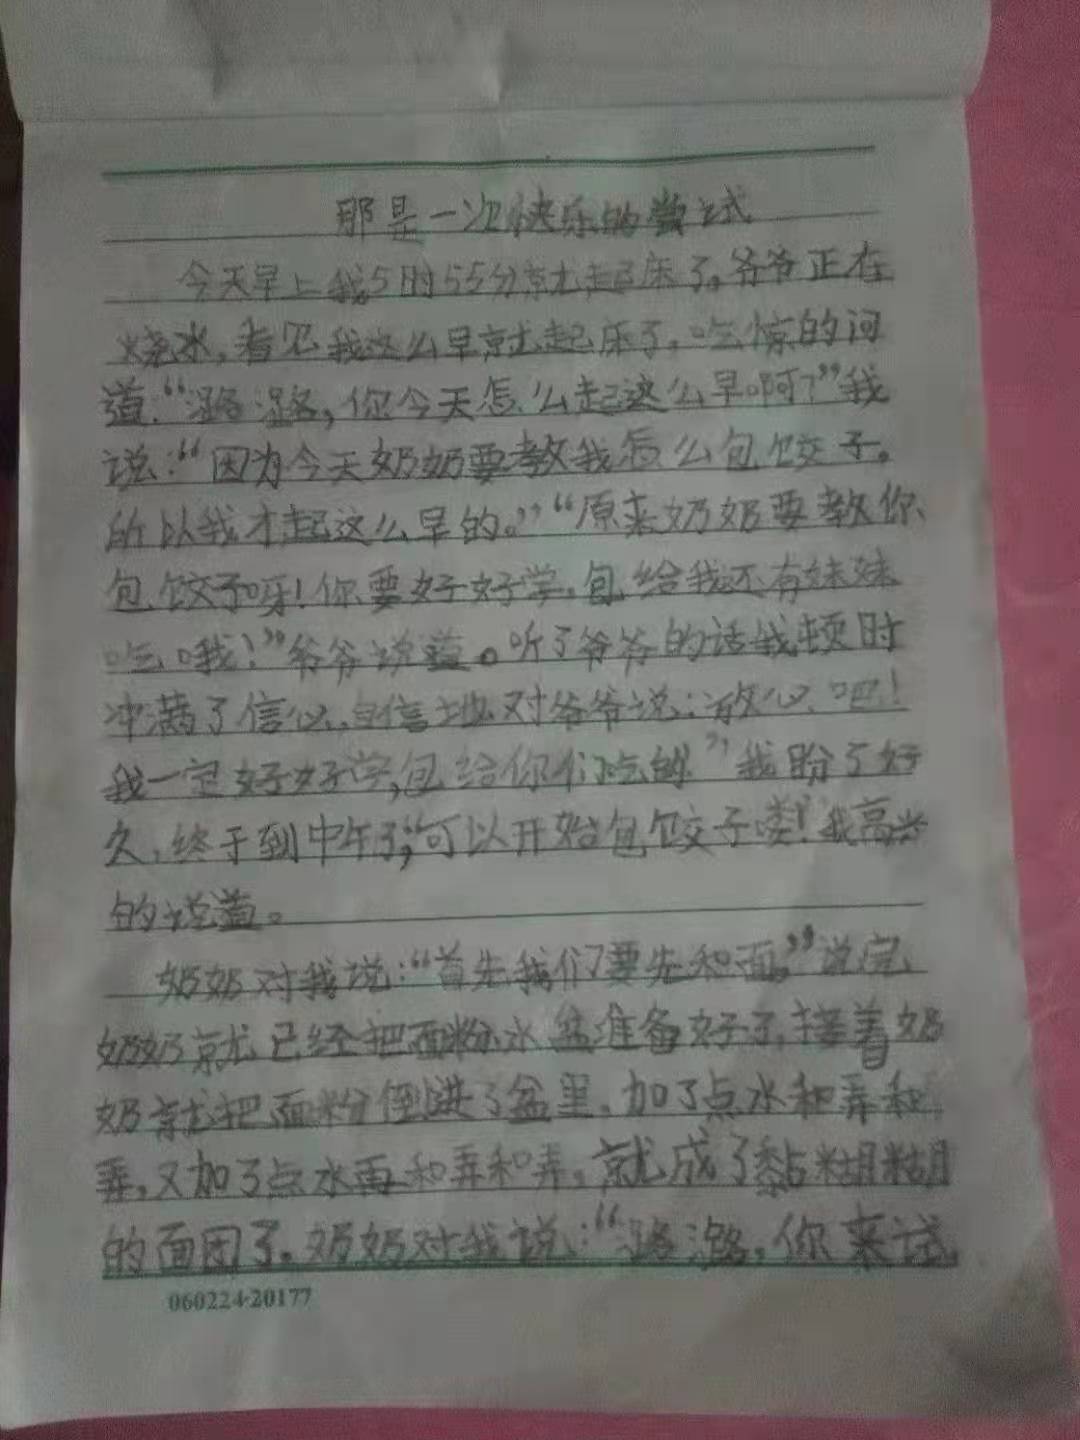 那是一次快乐的尝试
今天早上我5时55分就起床了。爷爷正在
烧水,看见我这么早就起床了,吃惊的问
道:“潞潞,你今天怎么起这么早啊?”我
说:“因为今天奶奶要教我怎么包饺子。
所以我才起这么早的。”“原来奶奶要教你
包饺子呀!你要好好学,包给我还有妹妹
吃哦!”爷爷说道。听了爷爷的话我顿时
冲满了信心,自信地对爷爷说:放心吧!
我一定好好学,包给你们吃的”我盼了好
久,终于到中午了,“可以开始包饺子喽!”我高兴
的说道。
奶奶对我说:“首先我们要先和面,”说完
奶奶就已经把面粉水盆准备好了,接着奶
奶就把面粉倒进了盆里,加了点水和弄和
弄,又加了点水再和弄和弄,就成了黏糊糊
的面团了。奶奶对我说:“潞潞,你来试
060224-20177